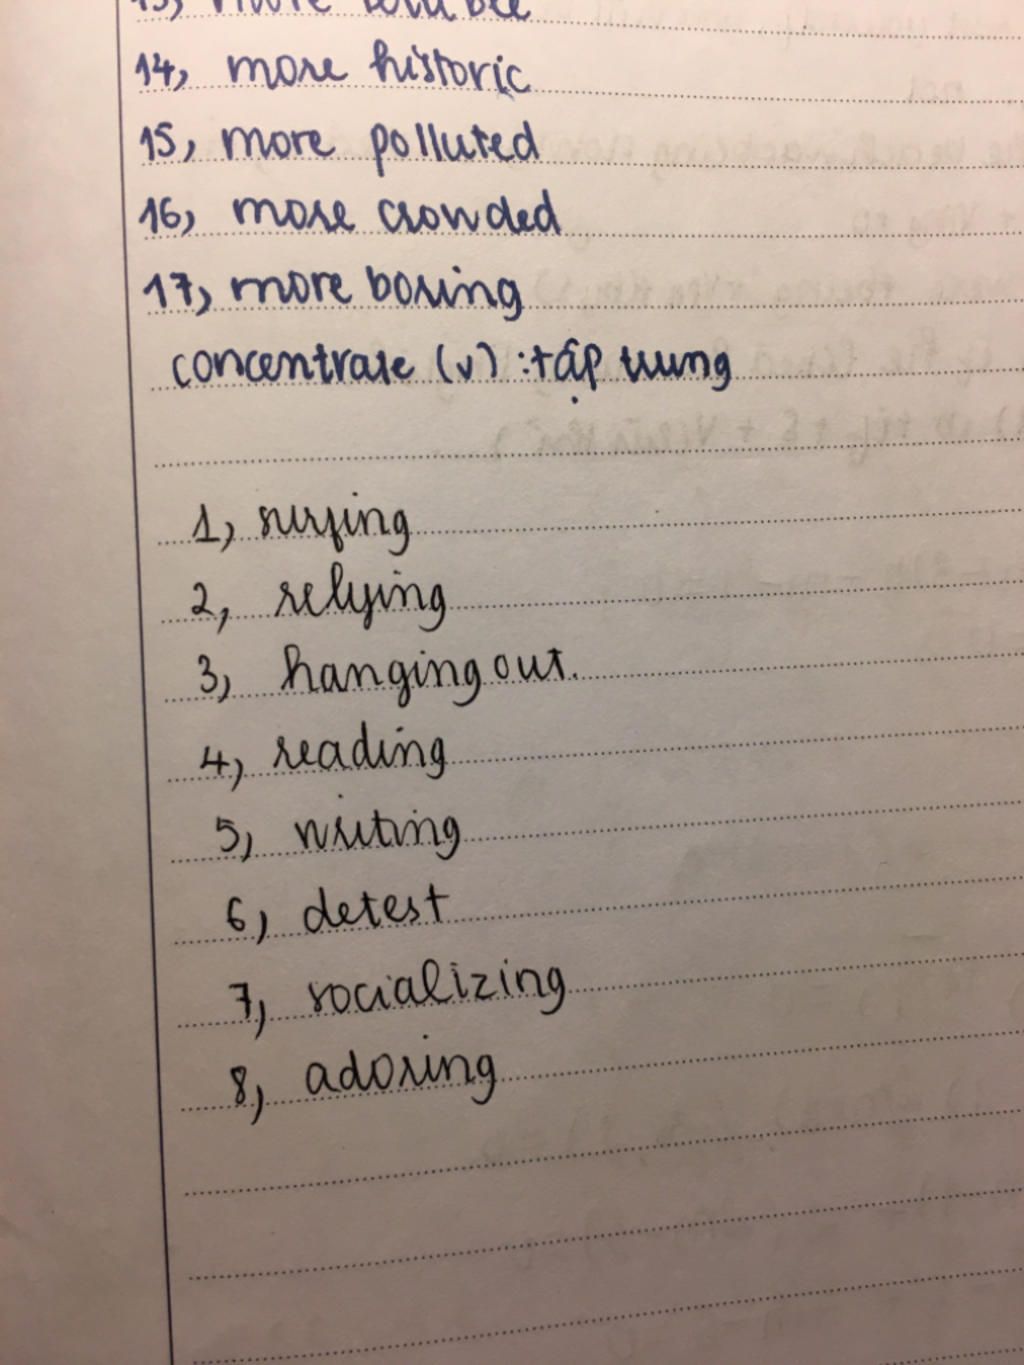 13, more
14, more historic
15, more polluted
16, more crowded
17, more boring
concentrate (v) : tập trung
1, surfing
2, relying
3, hanging out.
4, reading
5, writing
6, detest
7, socializing
8, adoring